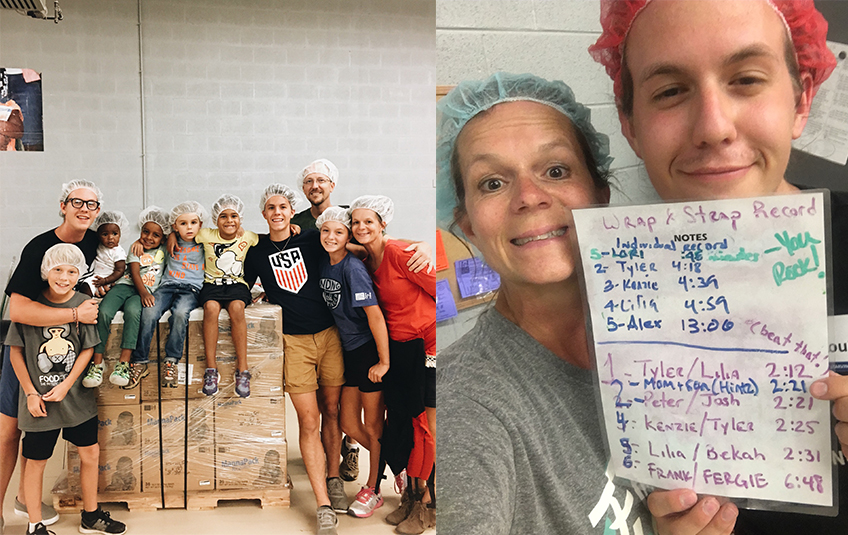 USA
FOOD
MannaPack
MannaPack
Wrap & Strap Record
NOTES
Individual Record
5- LORI :48
2- Tyler 4:18
3- Kenzie 4:39
4- Lilia 4:59
5- Alex 13:06
You Rock!
(beat that!)
1- Tyler/Lilia 2:12
2- Mom + Son (Hintz) 2:21
2- Peter/Josh 2:21
4- Kenzie/Tyler 2:25
5- Lilia/Bekah 2:31
6- FRANK/FERGIE 6:48